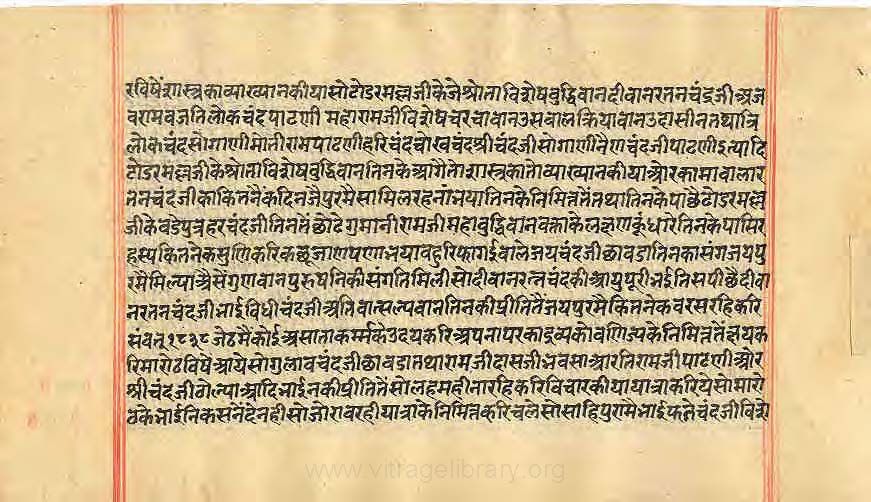 रविषैंशास्त्रकाव्याख्यानकीयासोटोडरमल्लजीकेजेश्रोताविशेषबुद्धिवानदीवानरतनचंदजीअज
वरामवजतिलोकचंदपाटणी महारामजीविशेषचरचावानउसवालक्रियावानउदासीनतथात्रि
लोकचंदसोगाणीमोतीरामपाटणीहरिचंदचोखचंदश्रीचंदजीसोगाणीनेणचंदजीपाटणीइत्यादि
टोडरमल्लजीकेश्रोताविशेषबुद्धिवानतिनकेआगैतोशास्त्रकातोव्याख्यानकीयाओरकामावालार
तनचंदजीकाकितनैकदिनजैपुरमैसामिलरहनांभयातिनकेनिमित्ततैंतथातिनकेपीछैटोडरमल्ल
जीकेवडेपुत्रहरचंदजीतिनतैंछोटेगुमानीरामजीमहाबुद्धिवानवक्ताकेलक्षणकूंधारेतिनकेपासिर
हस्यकितनेकसुणिकरिकछूजाणपणाभयावहुरिफागईवालेजयचंदजीछावडातिनकासंगजयपु
रमैमिल्याऔसैंगुणवानपुरुषनिकीसंगतिमिलीसोदीवानरत्नचंदकीआयुपूरीभईतिसपीछैदीवा
नरतनचंदजीभाईविधीचंदजीअतिवात्सल्यवानतिनकीप्रीतितैंजयपुरमैकितनेकवरसरहिकरि
संवत्१८३८जेठमैंकोईअसाताकर्म्मकेउदयकरिअपनापरकाद्रव्यकोवणिज्यकेनिमित्ततैंक्षयक
रिमारोठविषैंआयेसोगुलावचंदजीछावडातथारामजीदासजीभवसाआरतिरामजीपाटणीओर
श्रीचंदजीठोल्याआदिभाईनकीप्रीतितैंसोलहमहीनारहिकरिविचारकीयायात्राकरियेसोमारो
ठकेभाईनिकसनेदेनहीसोजोरावरहीयात्राकेनिमित्तकरिचलेसोसाहिपुरामैभाईफतेचंदजीविशे
www.vitragelibrary.org